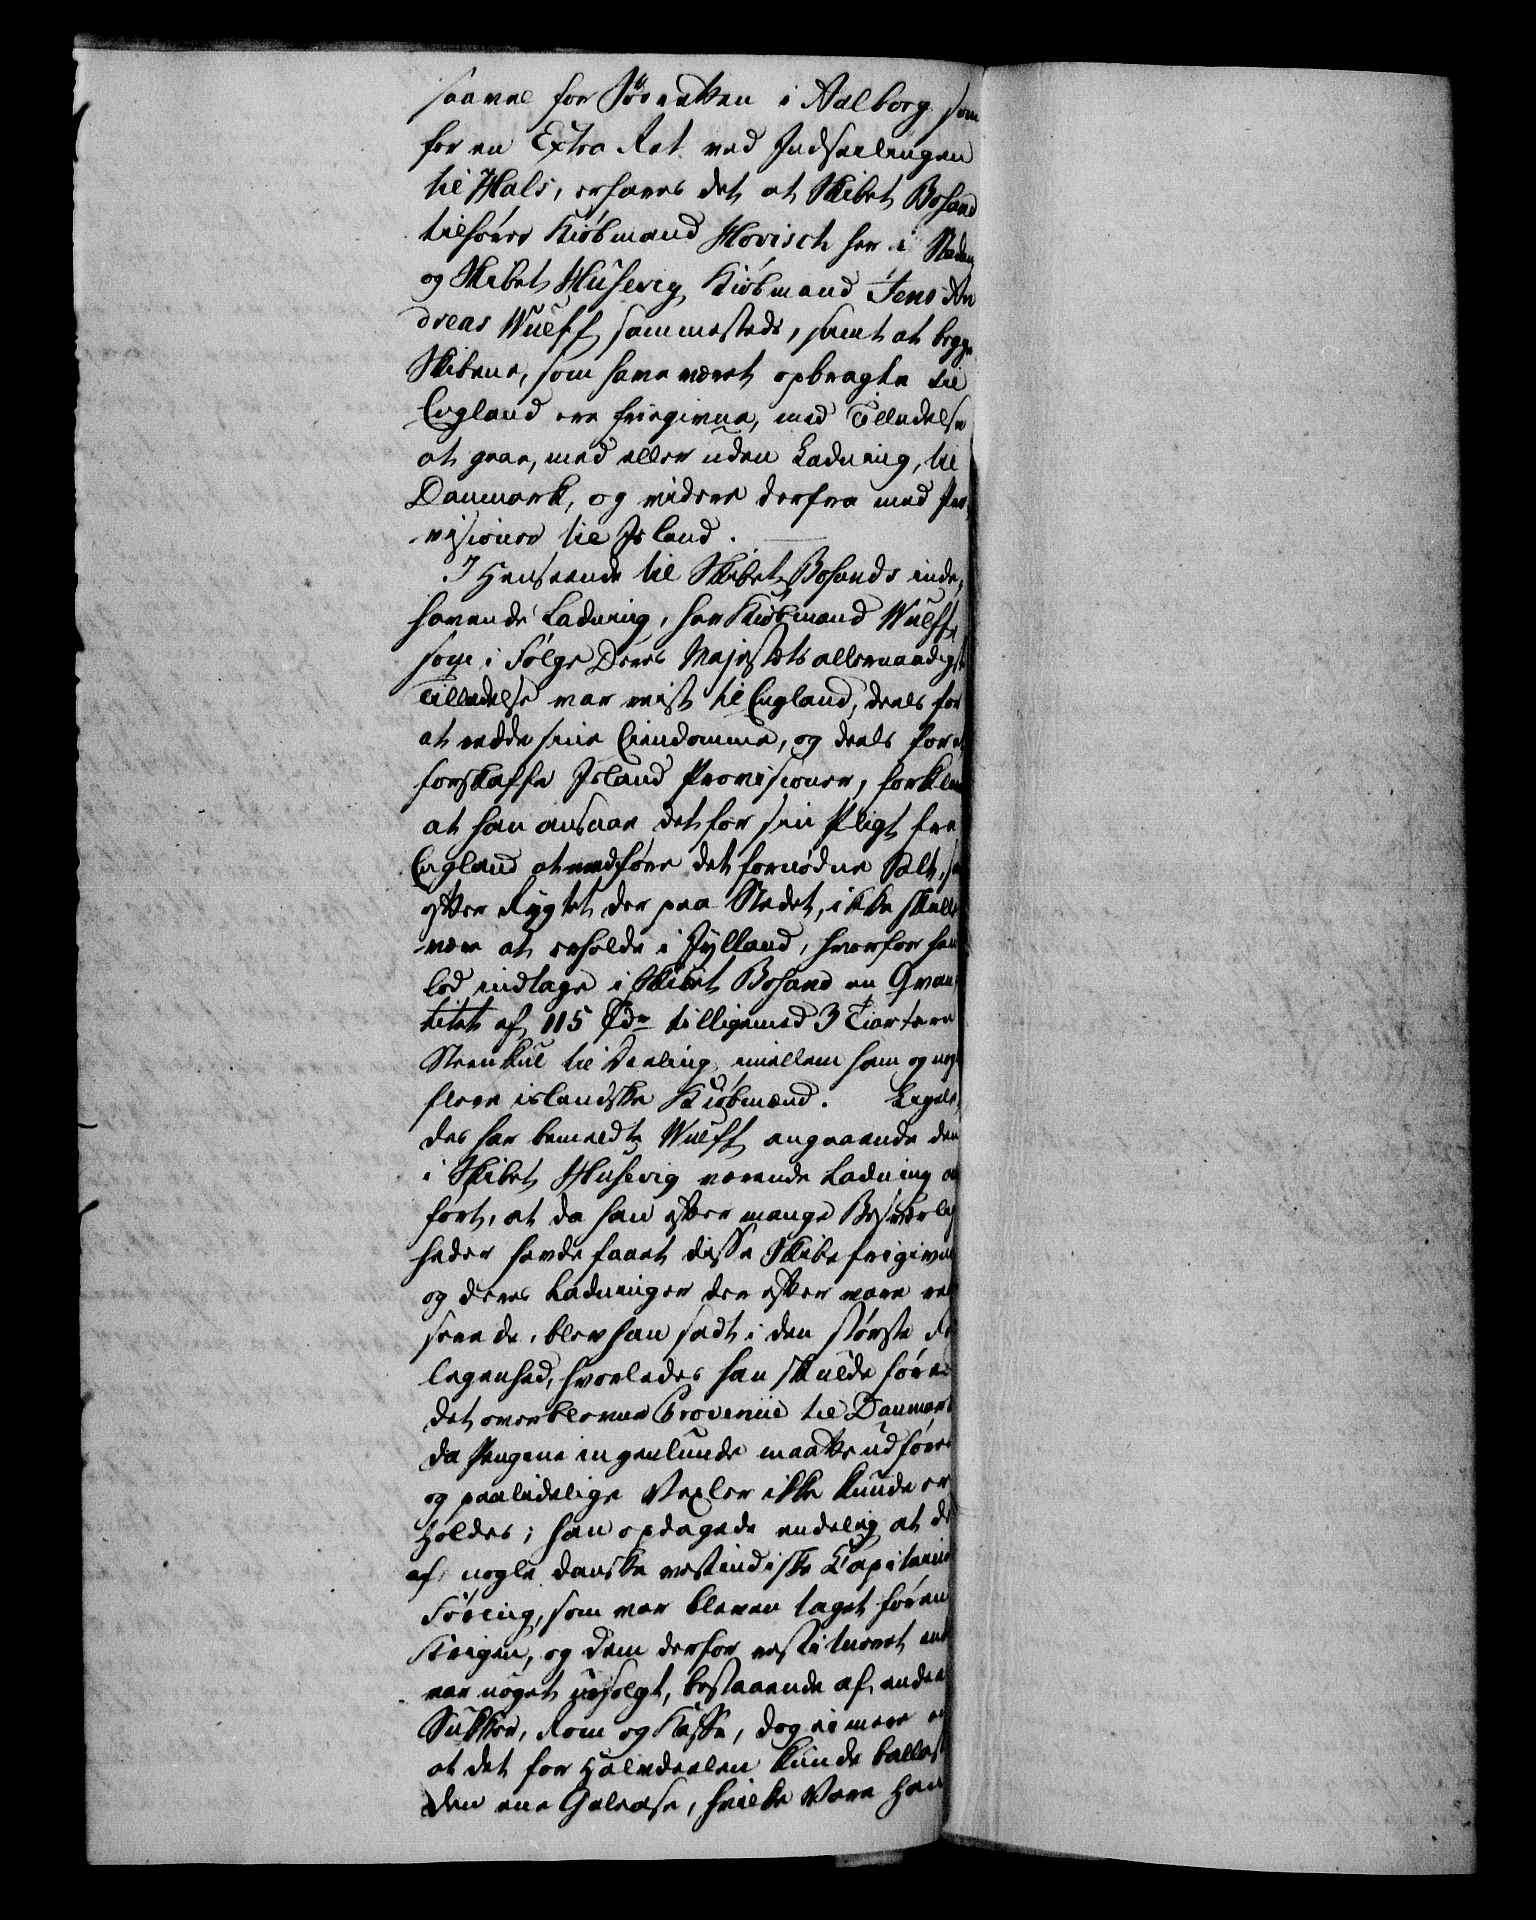 saavel for Søeretten i Aalborg som
for en Extra Ret ved Indseilingen
til Hals, erfares det at Skibet Bosand
tilhører Kiøbmand Hovisch her i Staden
og Skibet Husevig Kiøbmand Jens An
dreas Wulff sammesteds, samt at begge
Skibene, som have været opbragte til
England ere frigivne, med Tilladelse
at gaae, med eller uden Ladning, til
Danmark, og videre derfra med Pro
visioner til Island.
I Henseende til Skibet Bosands inde,
havende Ladning, har Kiøbmand Wulff,
som i Følge Deres Majestæts allernaadigste
Tilladelse var reist til England, deels for
at redde sine Eiendomme, og deels for at
forskaffe Island Provisioner, forklaret
at han ansaae det for sin Pligt fra
England at medføre det fornødne Salt, som
efter Rygtet der paa Stedet, ikke skulle
være at erholde i Jylland, hvorfor han
lod indtage i Skibet Bosand en Qvan,
titet af 115 Tdr tilligemed 3
Steenkul til Deeling imellem ham og nogle
flere islandske Kiøbmænd. Ligele,
des har bemeldte Wulff angaaende den
i Skibet Husevig værende Ladning an
ført, at da han efter mange Besværlig
heder havde faaet disse Skibe frigivne
og deres Ladninger der efter vare
blev han sadt i den største For
legenhed, hvorledes han skulde føre
det overblevne Provenüe til Danmark
da Pengene ingenlunde maatte udføres
og paalidelige Vexler ikke kunde er
holdes; han opdagede endelig at der
af nogle danske vestindiske Capitainers
Føring, som var bleven taget før en
Krigen, og dem derfor restitueret end
var noget usolgt, bestaaende af endeel
Sukker, Rom og Kaffe, dog ei mere end
at det for Halvdeelen kunde ballaste
den ene Galease, hvilke Vare han